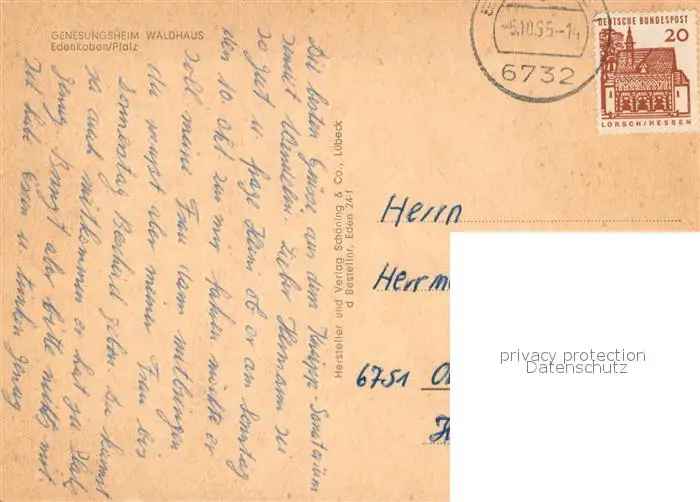 GENESUNGSHEIM WALDHAUS
Edenkoben/Pfalz
Die besten Grüsse aus dem Knapp-Sanatorium
sendet Wendelin. Lieber Hermann sei
so gut u. frage Heini ob er am Sonntag
den 10. Okt. zu mir fahren möchte er
soll meine Frau dann mitbringen
du musst aber meiner Frau bis
Donnerstag Bescheid geben. Du kannst
ja auch mitkommen er hat ja Platz
genug. Bringt aber bitte nichts mit.
Ich habe Essen u. trinken genug
Hersteller und Verlag Schöning & Co., Lübeck
d Bestellnr. Eden 24-f
-5.10.65-14
6732
DEUTSCHE BUNDESPOST
20
LORSCH/HESSEN
Herrn
6751
privacy protection
Datenschutz